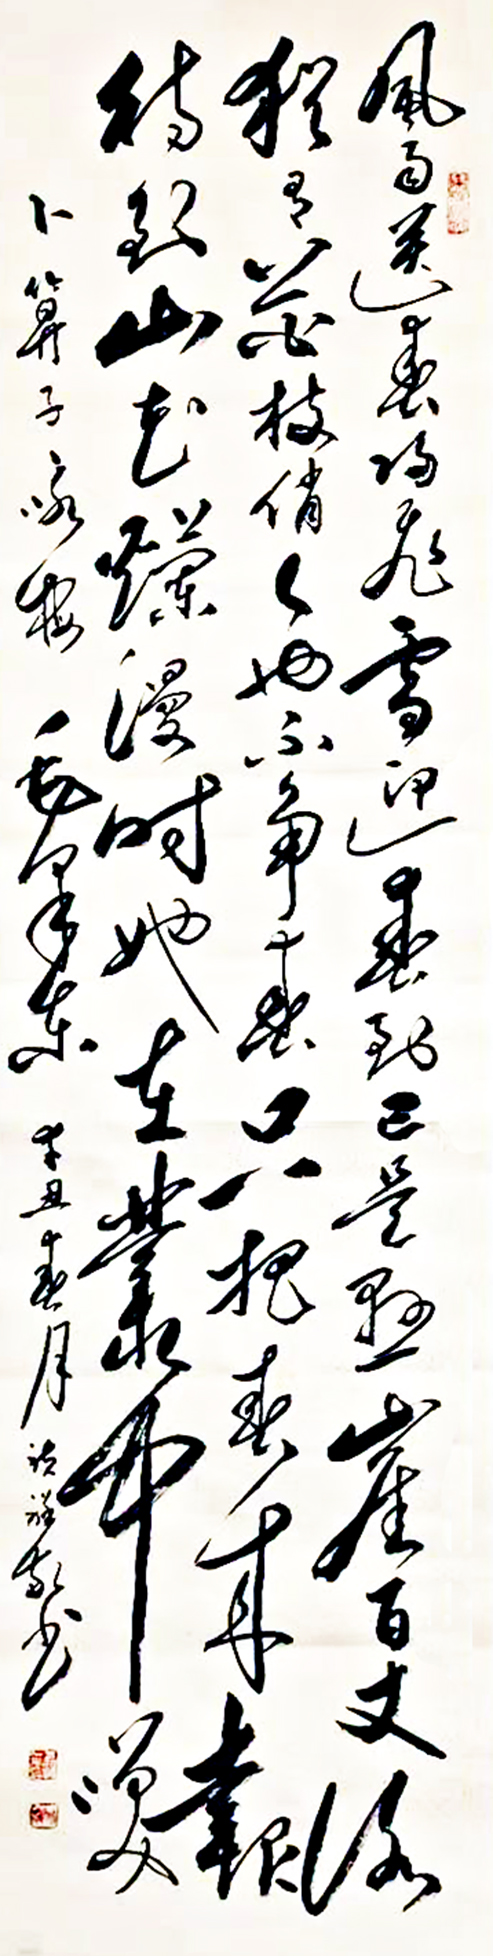 風雨送春歸飛雪迎春到已是懸崖百丈冰
猶有花枝俏々也不争春只把春来報
待到山花爛漫時她在叢中笑
卜算子咏梅 毛澤东 辛丑春月 祥敬书